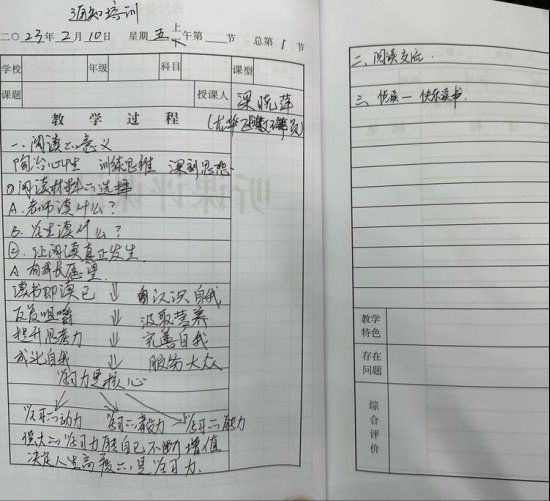 培训
二〇23年2月10日 星期五 上下午第 节 总第1节
学校 年级 科目 课型
课题 授课人 梁晓萍
教学过程
一、阅读的意义
陶冶心性 训练思维 深刻思想
①阅读材料的选择
A.老师读什么?
B.学生读什么?
②.让阅读真正发生
A 有成长愿望
读书即读己 ⇓ 自我认识自我
反复咀嚼 ⇓ 汲取营养
提升思考力 ⇓ 完善自我
成就自我 ⇓ 服务大众
学习力是核心
学习的动力 学习的毅力 学习的能力
强大的学习力 自己不断增值
决定人生高度的是学习力.
二、阅读交流.
三、悦读—快乐读书.
教学
特色
存在
问题
综合评价